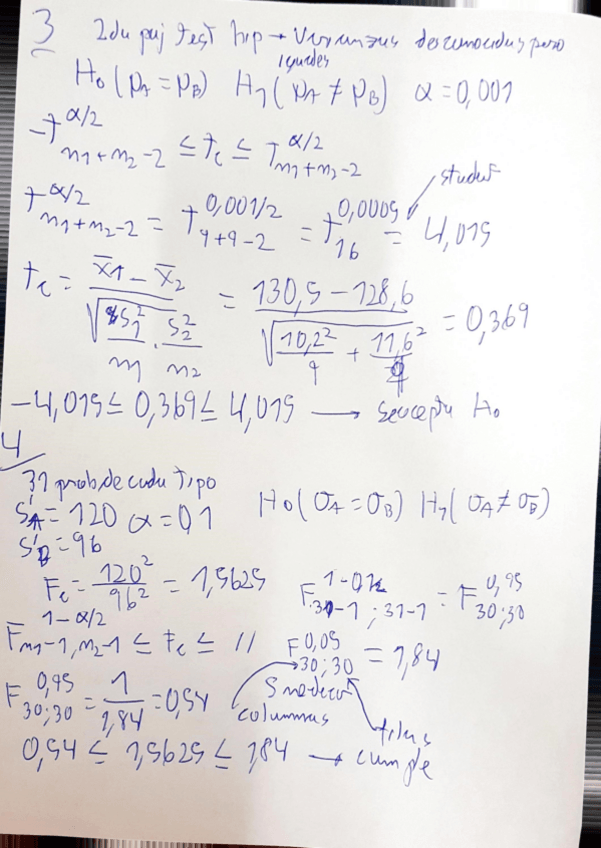 3 2da pág test hip → Varianzas desconocidas pero
iguales
H₀(μA = μB) H₁(μA ≠ μB) α = 0,001
-t^α/2 n1+n2-2 ≤ tc ≤ T^α/2 n1+n2-2
t^α/2 n1+n2-2 = t^0,001/2 9+9-2 = t^0,0005 16 = 4,015
student
tc = (x̄1 - x̄2) / √(S1²/n1 · S2²/n2) = (130,5 - 128,6) / √(10,2²/9 + 11,6²/9) = 0,369
-4,015 ≤ 0,369 ≤ 4,015 → se acepta H₀
4
31 prob de cada tipo
S'A = 120 α = 0,1 H₀(σA = σB) H₁(σA ≠ σB)
S'B = 96
Fc = 120²/96² = 1,5625 F^1-0,1/2 31-1;31-1 = F^0,95 30;30
F^1-α/2 n1-1,n2-1 ≤ Fc ≤ // F^0,05 30;30 = 1,84
F^0,95 30;30 = 1/1,84 = 0,54 Snedecor
columnas filas
0,54 ≤ 1,5625 ≤ 1,84 → cumple